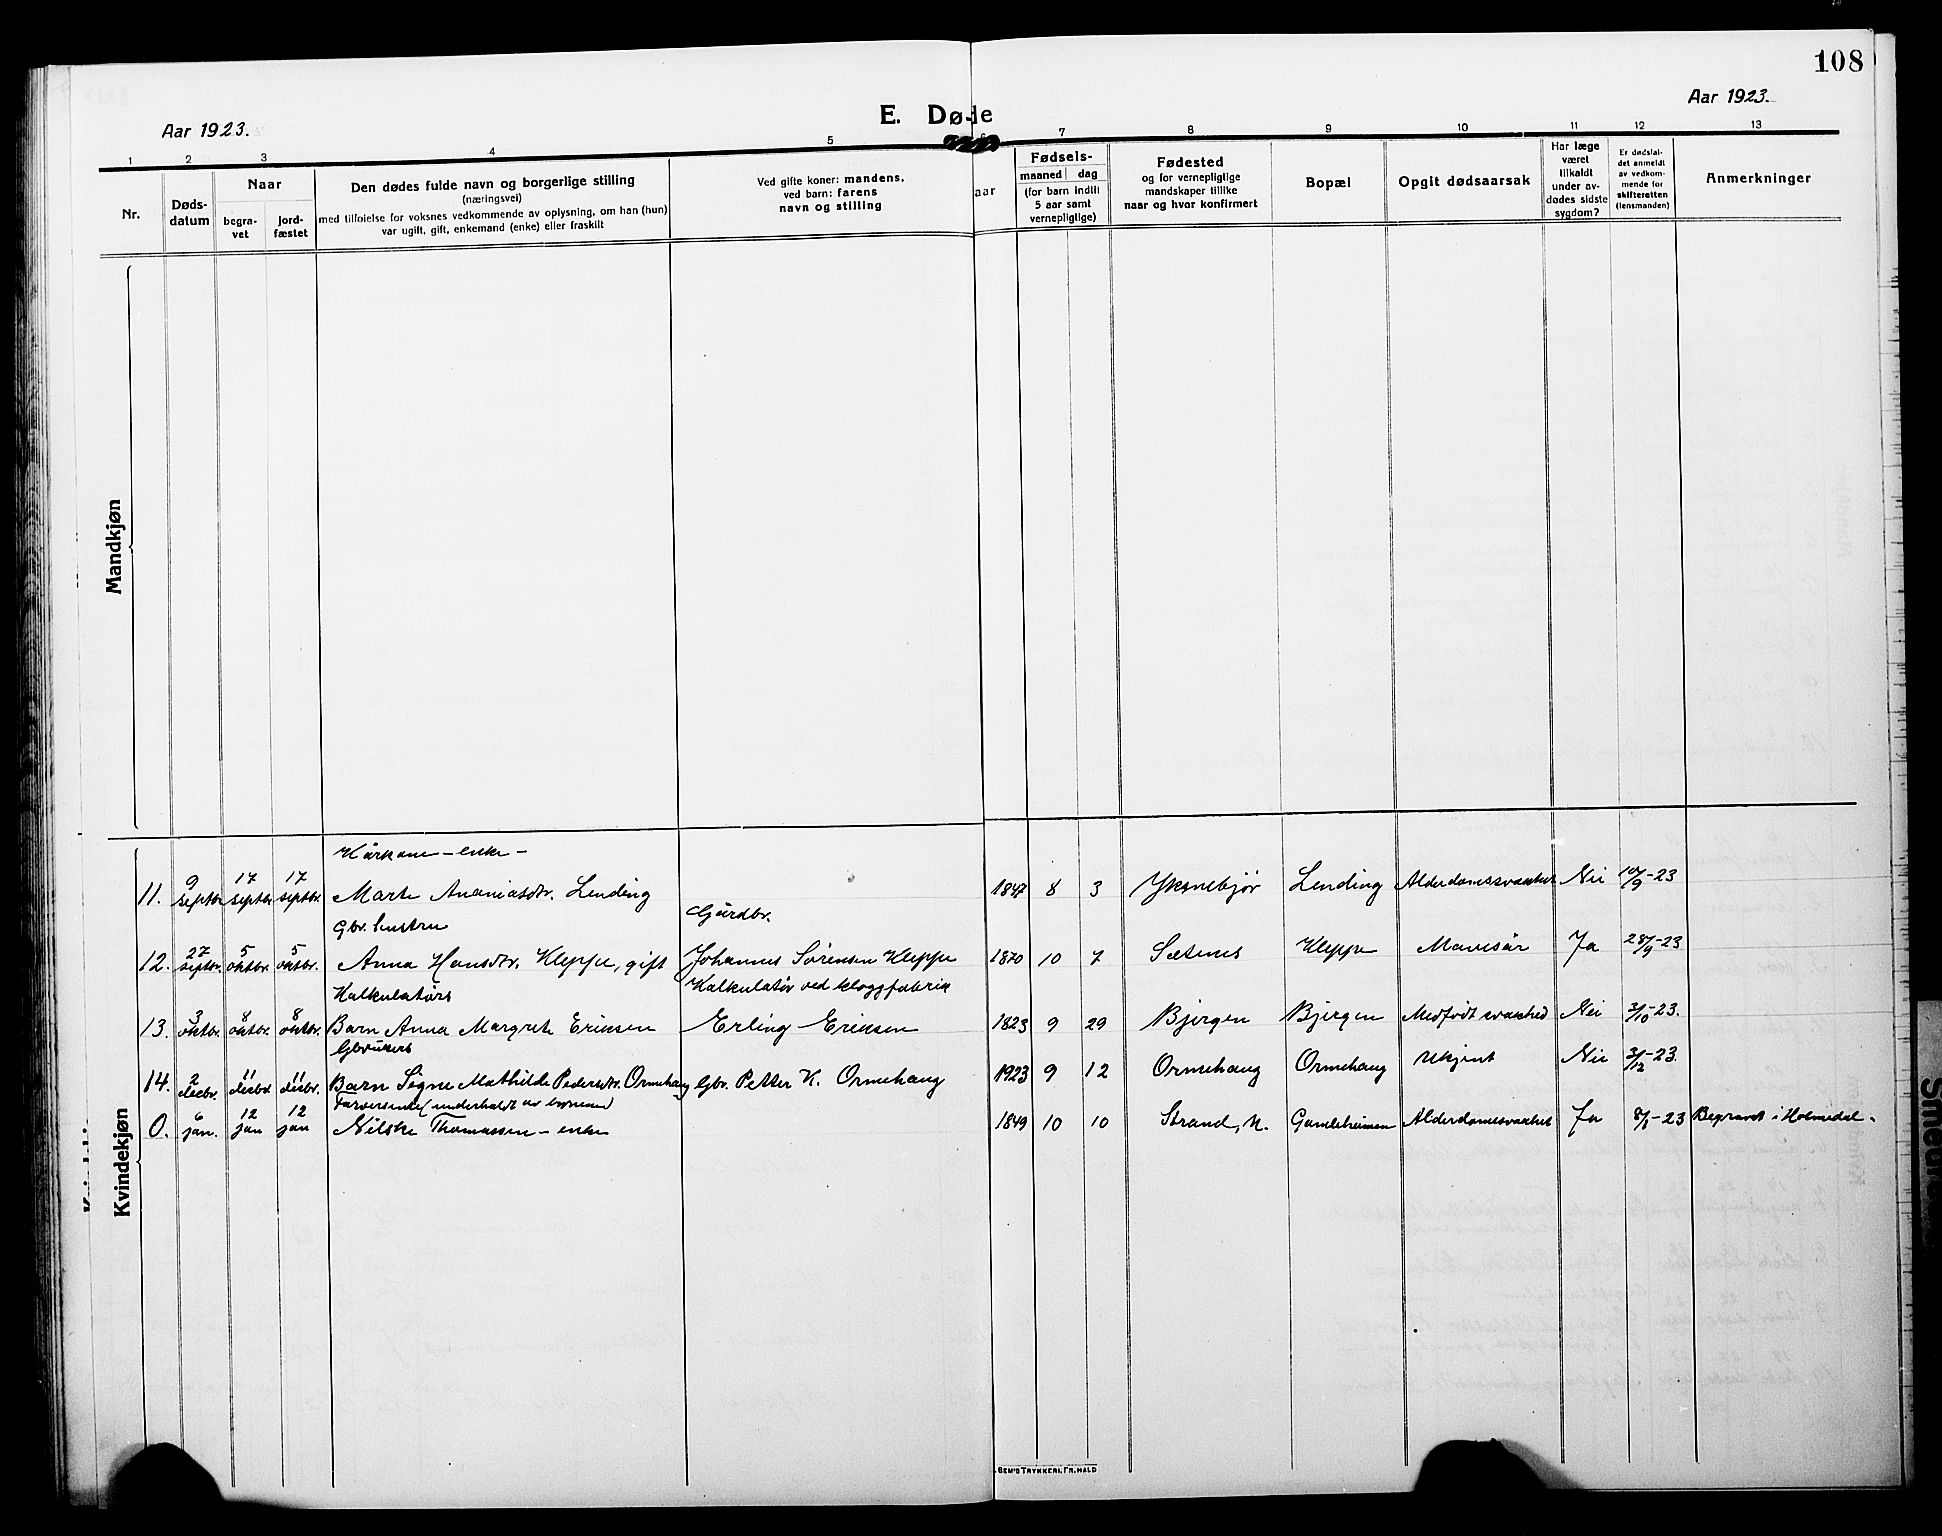 108
Aar 1923.
E. Døde
Aar 1923.
1 2 3 4 5 6 7 8 9 10 11 12 13
Nr.
Døds-
datum
Naar
begra-
vet
jord-
fæstet
Den dødes fulde navn og borgerlige stilling
(næringsvei)
med tilføielse for voksnes vedkommende av oplysning, om han (hun)
var ugift, gift, enkemand (enke) eller fraskilt
Ved gifte koner: mandens,
ved barn: farens
navn og stilling
aar
Fødsels-
maaned dag
(for barn indtil
5 aar samt
vernepligtige)
Fødested
og for vernepliglige
mandskaper tillike
naar og hvor konfirmert
Bopæl
Opgit dødsaarsak
Har læge
været
tilkaldt
under av-
dødes sidste
sygdom?
Er dødsfal-
det anmeldt
av vedkom-
mende for
skifteretten
(lensmanden)
Anmerkninger
Mandkjøn
Kvindekjøn
Kårkone - enke -
11. 9 septbr. 17 septbr. 17 septbr. Marte Ananiasdtr. Lending 1847 8 3 Yksnebjør Lending Alderdomssvakhet Nei 10/9-23
Gbr. hustru Gårdbr.
12. 27 septbr. 5 oktbr. 5 oktbr. Anna Hansdtr. Kleppe, gift Johannes Sørensen Kleppe 1870 10 7 Sætenes Kleppe Mavesår Ja 28/9-23
Kalkulatørs Kalkulatør ved kloggfabrik
13. 3 oktbr. 8 oktbr. 8 oktbr. Barn Anna Margrete Eriksen Erling Eriksen 1823 9 29 Bjergen Bjergen Medfødt svakhed Nei 3/10-23.
Gbrukers
14. 2 decbr. 11 decbr. 11 decbr. Barn Signe Mathilde Pedersdtr. Ormehaug Gbr. Petter K. Ormehaug 1923 9 12 Ormehaug Ormehaug Ukjent Nei 3/12-23.
(underholdt av
0. 6 jan. 12 jan 12 jan Nilske Thomassen - enke 1849 10 10 Strand, N. Gamleheimen Alderdomssvakhet Ja 8/1-23 Begravet i Holmedal.
.SEM'S TRYKKERI, FR. HALD